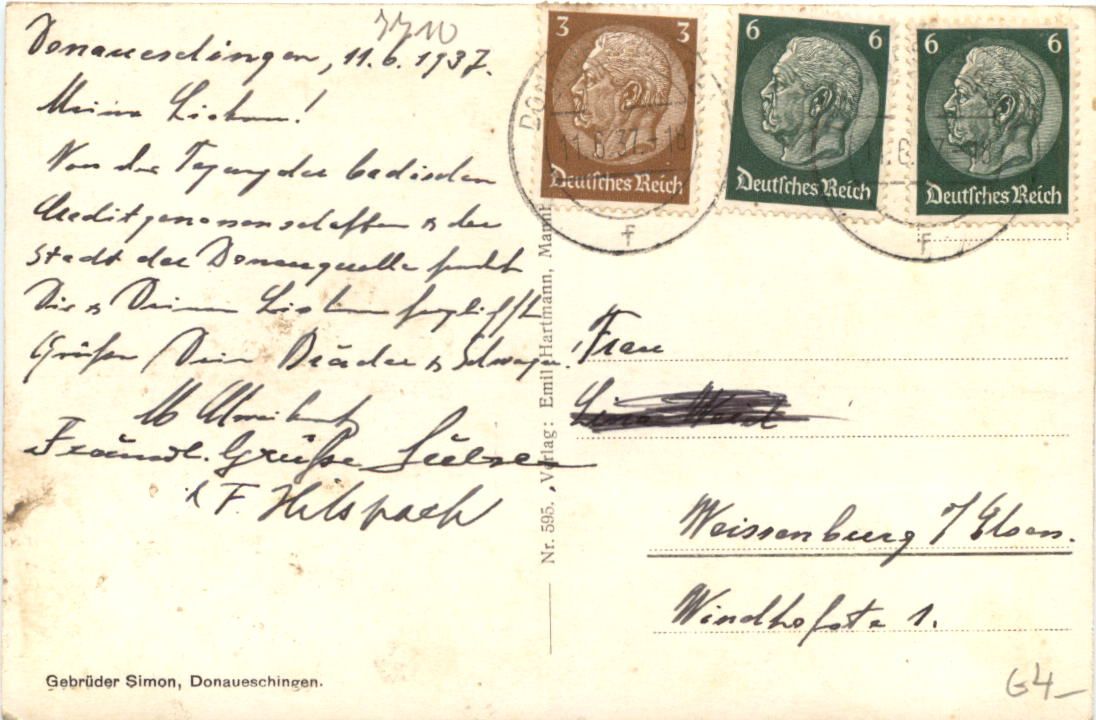 7710
Donaueschingen, 11.6.1937.
Meine Lieben!
Von der Tagung der badischen
Kreditgenossenschaften & der
Stadt der Donauquelle sendet
Dir & Deinen Lieben
Grüßen Dein Bruder & Schwager.
Freundl. Grüße
& F. Hilspach
Gebrüder Simon, Donaueschingen.
Nr. 595. Verlag: Emil Hartmann, Mannh
3 3
Deutsches Reich
6 6
Deutsches Reich
6 6
Deutsches Reich
DO
11.6.37.-18
f
f
Frau
Weissenburg / Elsas.
Windhofstr 1.
G4-